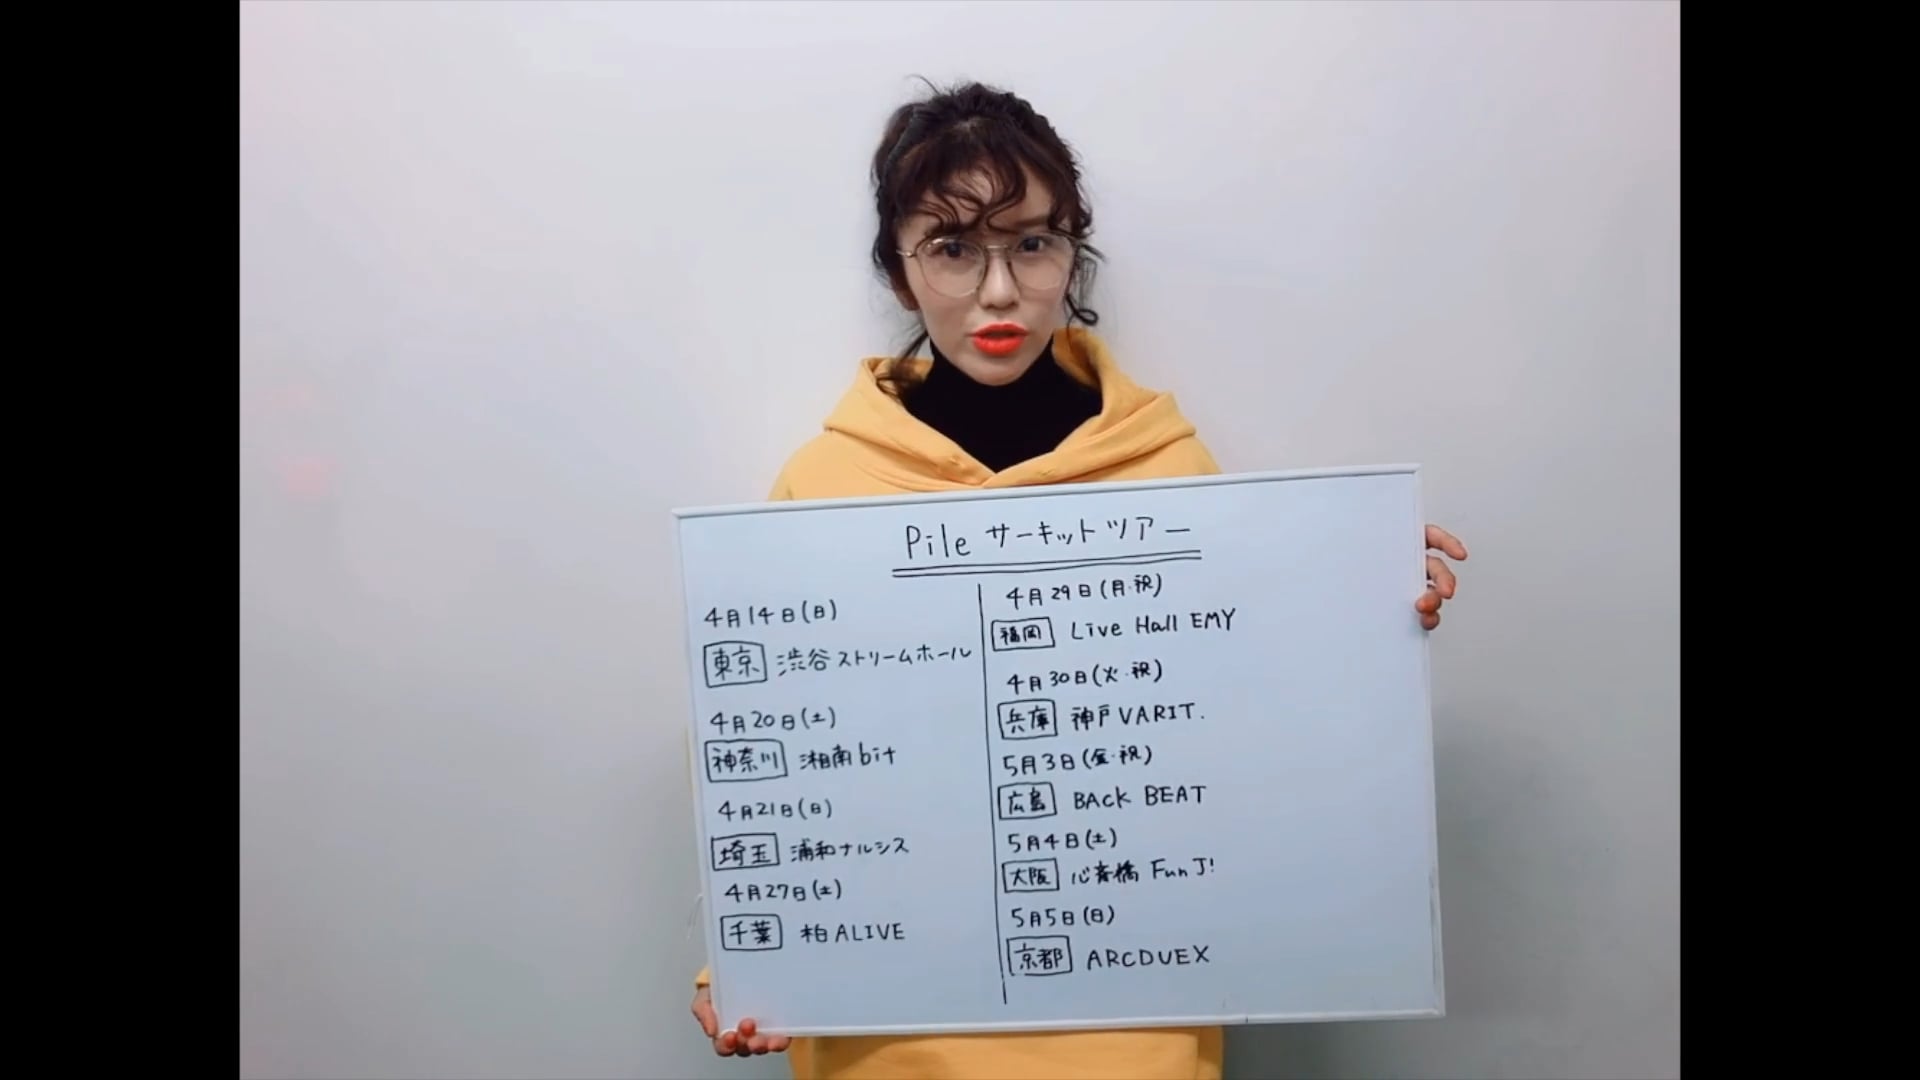 Pile サーキットツアー
4月14日(日)
東京 渋谷ストリームホール
4月20日(土)
神奈川 湘南bit
4月21日(日)
埼玉 浦和ナルシス
4月27日(土)
千葉 柏ALIVE
4月29日(月・祝)
福岡 Live Hall EMY
4月30日(火・祝)
兵庫 神戸VARIT.
5月3日(金・祝)
広島 BACK BEAT
5月4日(土)
大阪 心斎橋 FunJ!
5月5日(日)
京都 ARCDUEX